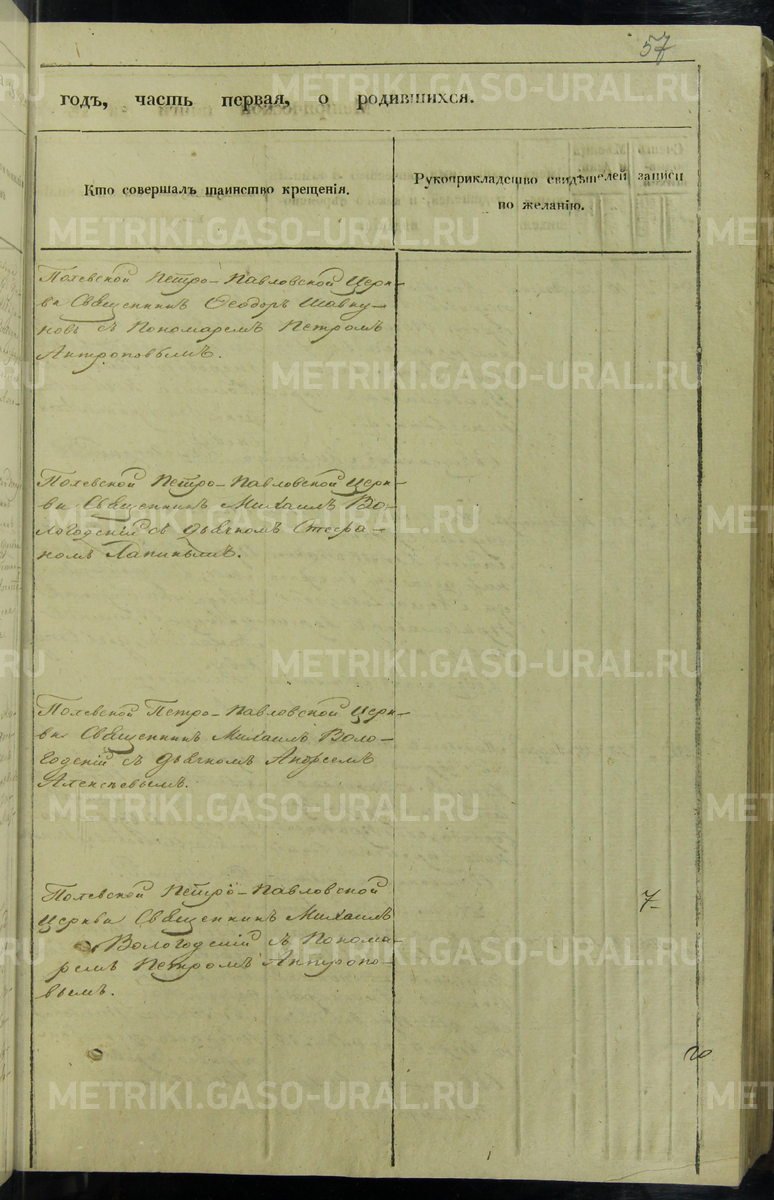 57
годъ, часть первая, о родившихся.
Кто совершалъ таинство крещенія.
Рукоприкладство свидѣтелей записи
по желанію.
Полевской Петро-Павловской Церк-
ви Священникъ Ѳеодоръ Шавку-
новъ съ Пономаремъ Петромъ
Антроповымъ.
Полевской Петро-Павловской Церк-
ви Священникъ Михаилъ Во-
логодскій съ дьячкомъ Стефа-
номъ Лапинымъ.
Полевской Петро-Павловской Церк-
ви Священникъ Михаилъ Воло-
годскій съ дьячкомъ Андреемъ
Алексѣевымъ.
Полевской Петро-Павловской
Церкви Священникъ Михаилъ
Вологодскій съ Понома-
ремъ Петромъ Антропо-
вымъ.
7
METRIKI.GASO-URAL.RU